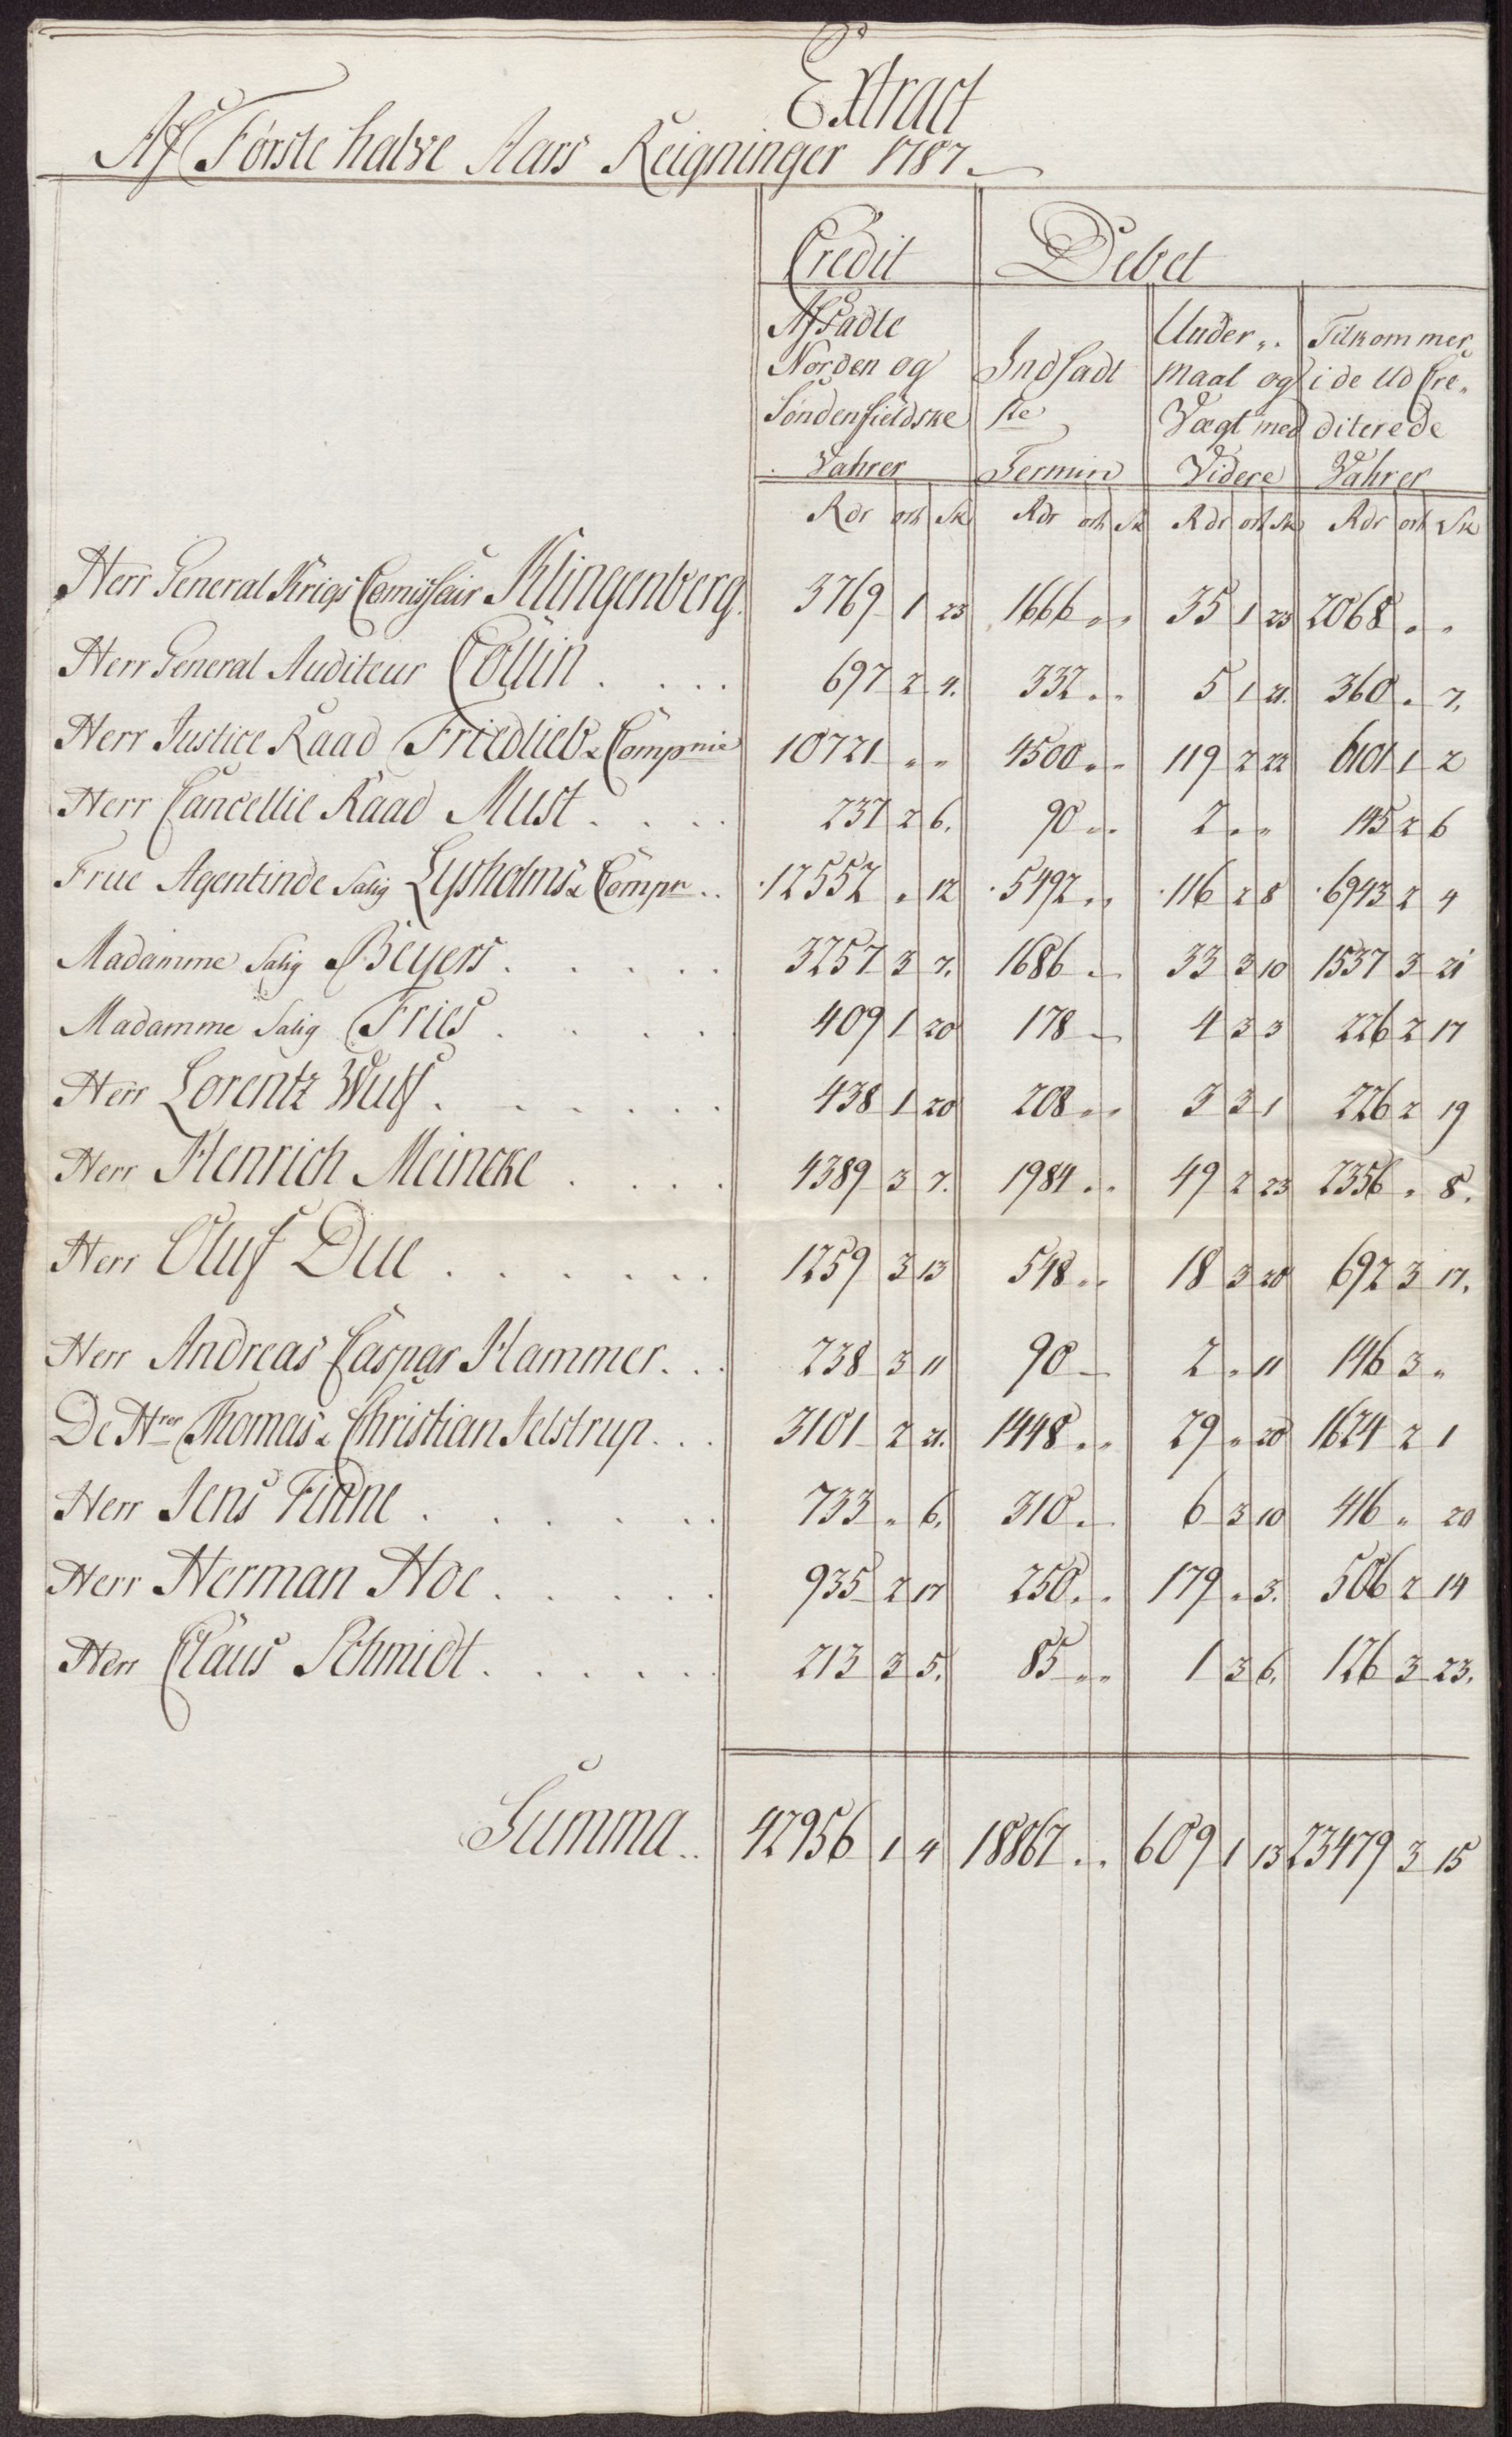 Extract
Af Første halve Aars Reigninger 1787
Credit Debet
Afsadte Under„. Tilkommer
Norden og Indsadt maal og i de Ud Cre„
Søndenfieldske ste Vægt med diterede
Vahrer Termin Videre Vahrer
Rdr ort Sk Rdr ort Sk Rdr ort Sk Rdr ort Sk
Herr General Krigs Comissair Klingenberg. 3769 1 23 1666 „ „ 35 1 23 2068 „ „
Herr General Auditeur Collin . . . . 697 2 4. 332 „ „ 5 1 21. 360 „ 7.
Herr Justice Raad Friedlieb & Compnie 10721 „ „ 4500 „ „ 119 2 22 6101 1 2
Herr Cancellie Raad Must . . . . 237 2 6. 90 „ „ 2 „ „ 145 2 6
Frue Agentinde Salig Lysholms & Compn . . 12552 „ 12 5492 „ „ 116 2 8 6943 2 4
Madamme Salig Beyers . . . . . 3257 3 7. 1686 „ 33 3 10 1537 3 21
Madamme Salig Fries . . . . 409 1 20 178 „ 4 3 3 226 2 17
Herr Lorentz Wulf . . . . . . 438 1 20 208 „ „ 3 3 1 226 2 19
Herr Henrich Meincke . . . . 4389 3 7. 1984 „ „ 49 2 23 2356 „ 8.
Herr Oluf Due . . . . . . 1259 3 13 548 „ „ 18 3 20 692 3 17.
Herr Andreas Caspar Hammer . . . 238 3 11 90 „ 2 „ 11 146 3 „
De Hrer Thomas & Christian Jelstrup . . . 3101 2 21. 1448 „ „ 29 „ 20 1624 2 1
Herr Jens Finne . . . . . . 733 „ 6. 310 „ 6 3 10 416 „ 20
Herr Herman Hoe . . . . . 935 2 17 250 „ „ 179 „ 3. 506 2 14
Herr Claus Schmidt . . . . . . 213 3 5. 85 „ „ 1 3 6. 126 3 23.
Summa . . 42956 1 4 18867 „ „ 609 1 13 23479 3 15